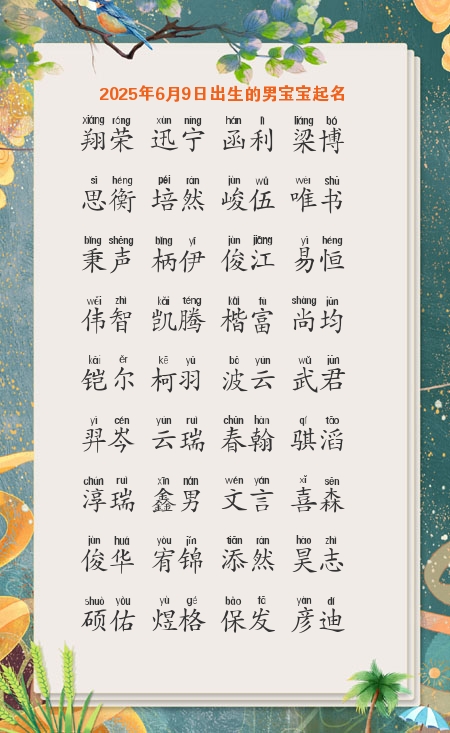 2025年6月9日出生的男宝宝起名
xiáng róng xùn níng hán lì liáng bó
翔荣 迅宁 函利 梁博
sī héng péi rán jùn wǔ wéi shū
思衡 培然 峻伍 唯书
bǐng shēng bǐng yī jùn jiāng yì héng
秉声 柄伊 俊江 易恒
wěi zhì kǎi téng kǎi fù shàng jūn
伟智 凯腾 楷富 尚均
kǎi ěr kē yǔ bō yún wǔ jūn
铠尔 柯羽 波云 武君
yì cén yún ruì chūn hàn qí tāo
羿岑 云瑞 春翰 骐滔
chún ruì xīn nán wén yán xǐ sēn
淳瑞 鑫男 文言 喜森
jùn huá yòu jǐn tiān rán hào zhì
俊华 宥锦 添然 昊志
shuò yòu yù gé bǎo fā yàn dí
硕佑 煜格 保发 彦迪